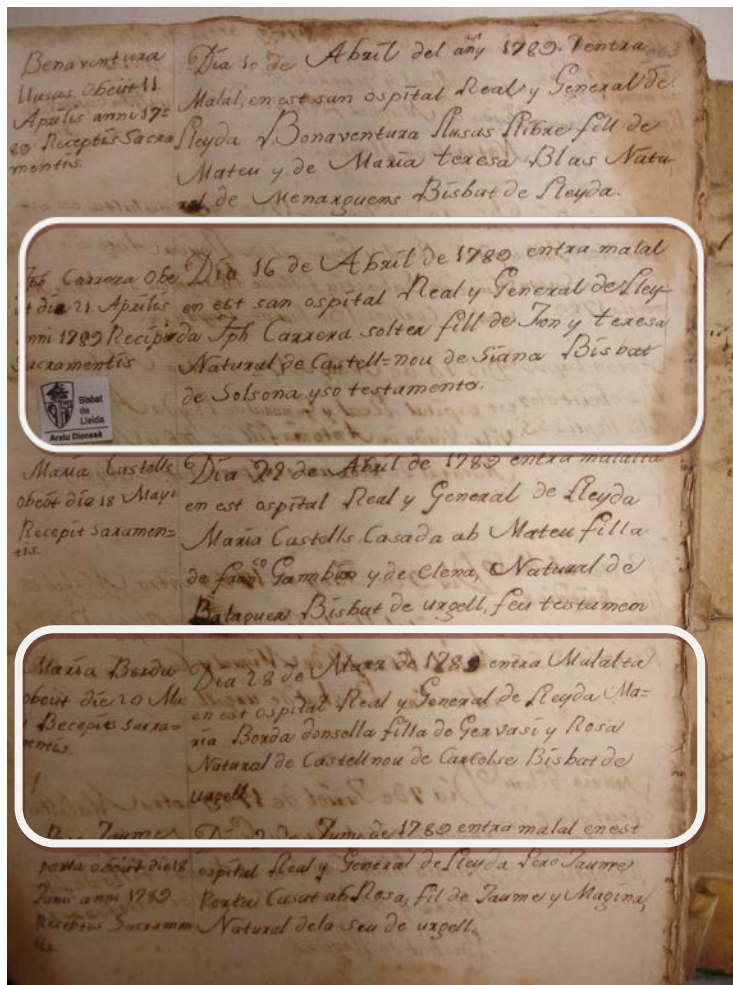 Benaventura
Llusas Obeiit 11
Aprilis anni 17=
89 Receptis Sacra
mentis.
Dia 10 de Abril del añy 1789. entra
Malal, en est san ospital Real y General de
Lleyda Bonaventura Llusas Llibre fill de
Mateu y de Maria teresa Blas Natu-
ral de Menarguens Bisbat de Lleyda.
Jph Carrera Obe
it die 21 Aprilis
anni 1789 Recip
Sacramentis
Dia 16 de Abril de 1789 entra malal
en est san ospital Real y General de Lley-
da Jph Carrera solter fill de Fon y teresa
Natural de Castell=nou de Siana Bisbat
de Solsona y so testamento.
Bisbat
de
Lleida
Arxiu Diocesà
Maria Castells
obeiit die 18 Mayi
Recepit saxamen=
tis.
Dia 22 de Abril de 1789 entra malalta
en est ospital Real y General de Lleyda
Maria Castells Casada ab Mateu filla
de franco Gambia y de Elena, Natural de
Balaguer Bisbat de urgell, feu testamen
Maria Borda
obeiit die 20 Ma
Recepis Sacra=
mentis
Dia 28 de de 1789 entra Malalta
en est ospital Real y General de Lleyda Ma=
ria Borda donsella filla de Gervasi y Rosa
Natural de Castellnou de Bisbat de
urgell
Pere Jaume
porta obeiit die 18
Junii anni 1789
Receptis Sacramen
tis
Dia 2 de Juny de 1789 entra malal en est
ospital Real y General de Lleyda Pere Jaume
Porta Casat ab Rosa, fil de Jaume y Magina,
Natural de la seu de urgell.